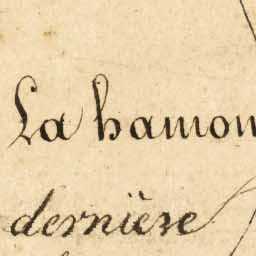 La hamon
dernière